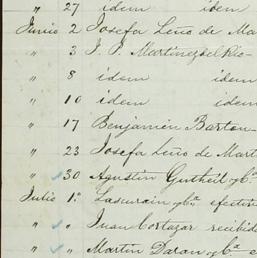 " 27 idem idem
Junio 2 Josefa Leño de Ma
" 3 J. P. Martinez del Rio
" 8 idem idem
" 10 idem idem
" 17 Benjamin Barton
" 23 Josefa Leño de Mart
" 30 Agustin Gutheil y Cª
Julio 1º Lascurain y Cª efectiv
" " Juan Cortazar recibid
" " Martin Daran y Cª e